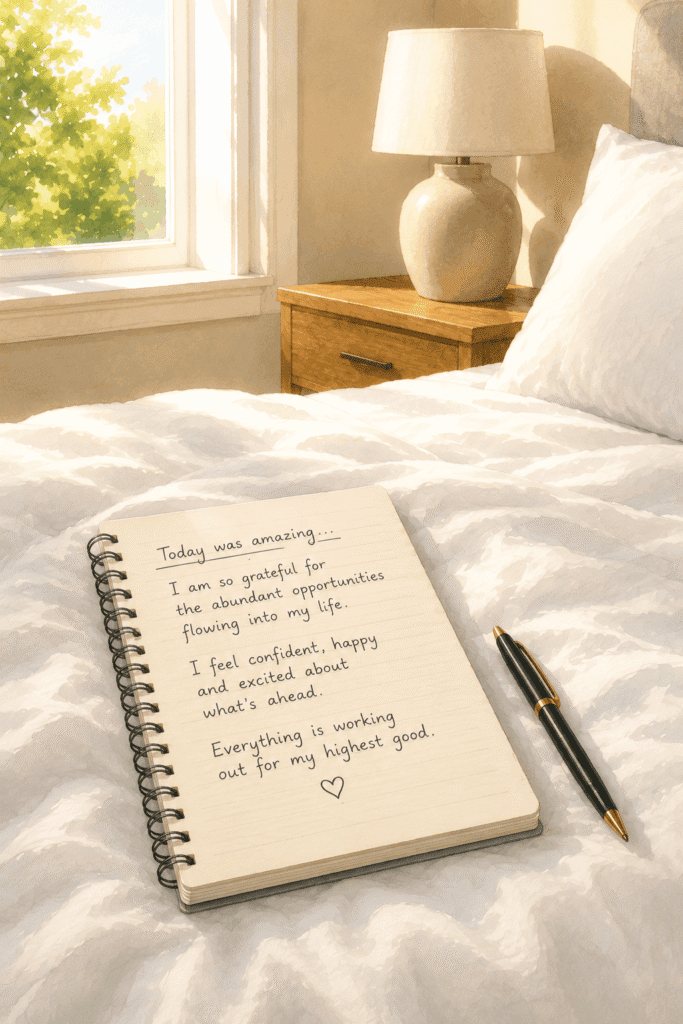 Today was amazing...
I am so grateful for
the abundant opportunities
flowing into my life.
I feel confident, happy
and excited about
what's ahead.
Everything is working
out for my highest good.
♡